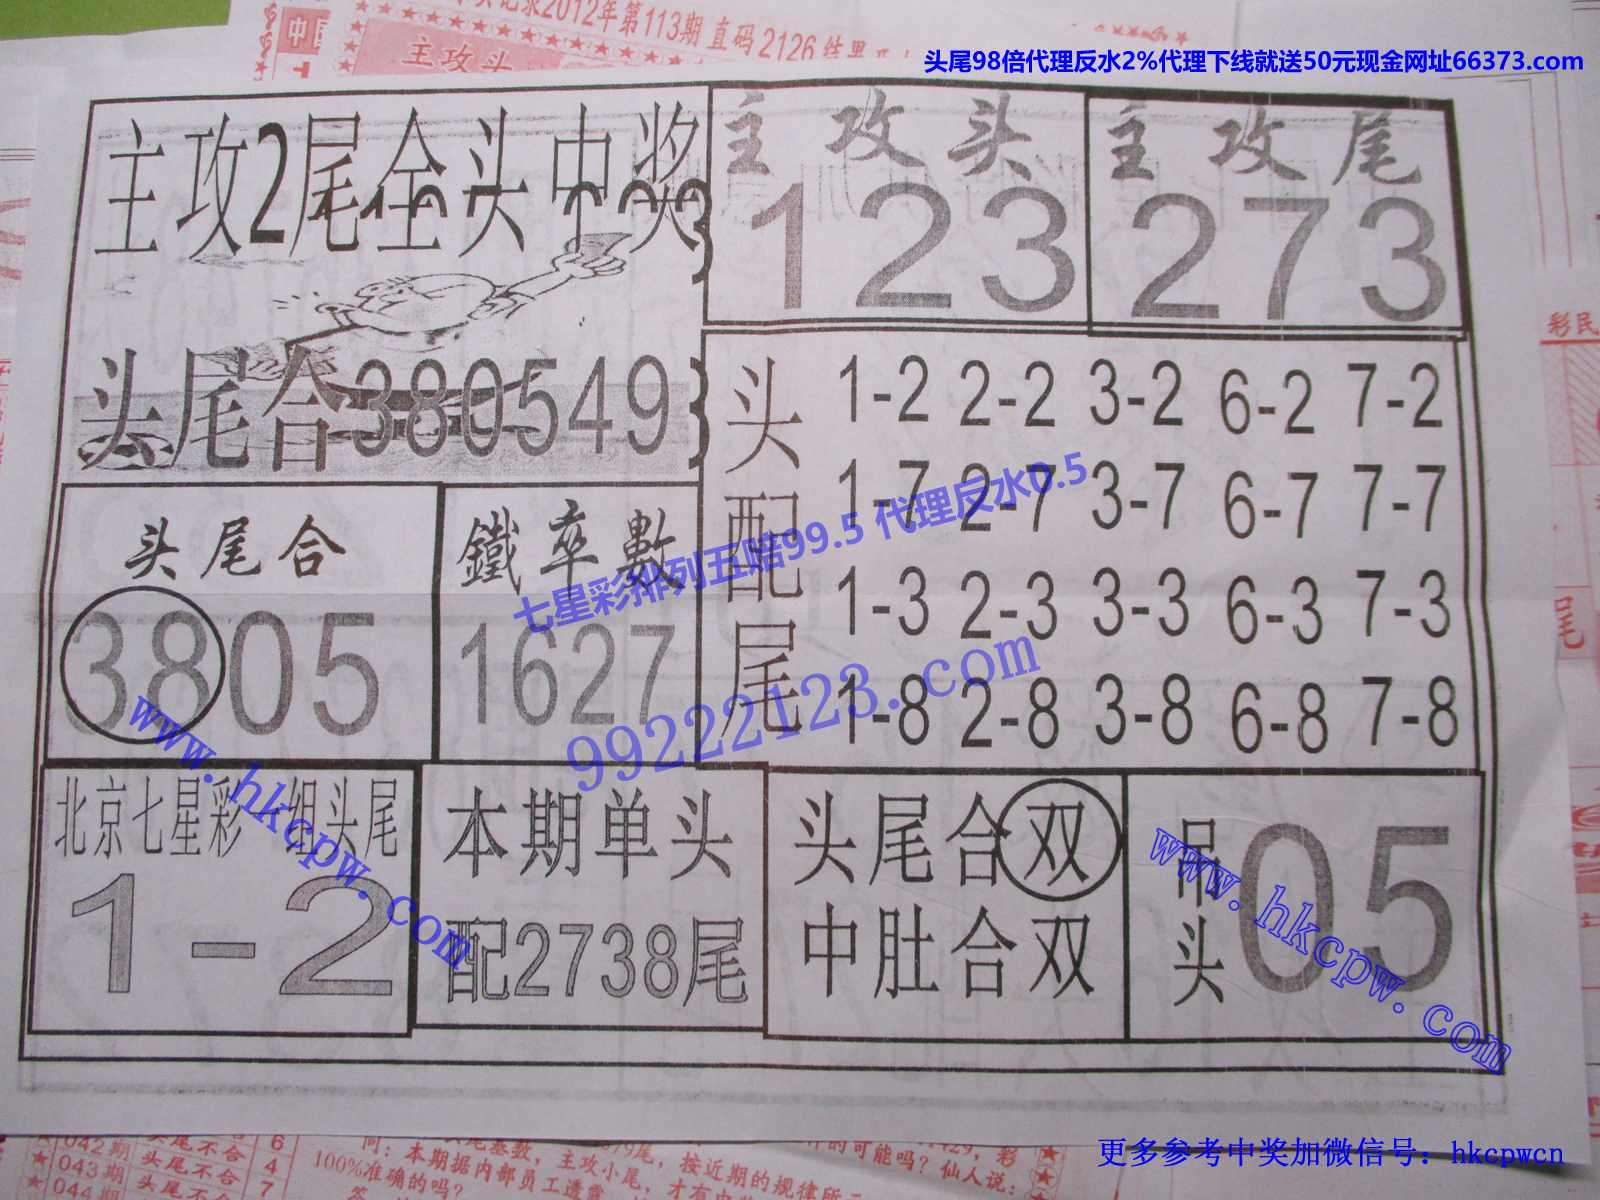 录2012年第113期 直码 2126
主攻头
头尾98倍代理反水2%代理下线就送50元现金网址66373.com
主攻2尾全头中奖
主攻头
123
主攻尾
273
头尾合380549
头配尾
1-2 2-2 3-2 6-2 7-2
1-7 2-7 3-7 6-7 7-7
1-3 2-3 3-3 6-3 7-3
1-8 2-8 3-8 6-8 7-8
头尾合
3805
鐵卒數
1627
七星彩排列五赔99.5 代理反水0.5
99222123.com
www.hkcpw.com
北京七星彩一组头尾
1-2
本期单头
配2738尾
头尾合双
中肚合双
吊头
05
www.hkcpw.com
彩民
尾
042期 头尾不合 6
043期 头尾不合 4
044 头尾不合 7
问：本期据内部员工透露
尾基数，主攻小尾，按近期的规律所
100%准确的吗？
才有中
的可能吗？仙人说：
更多参考中奖加微信号：hkcpwcn